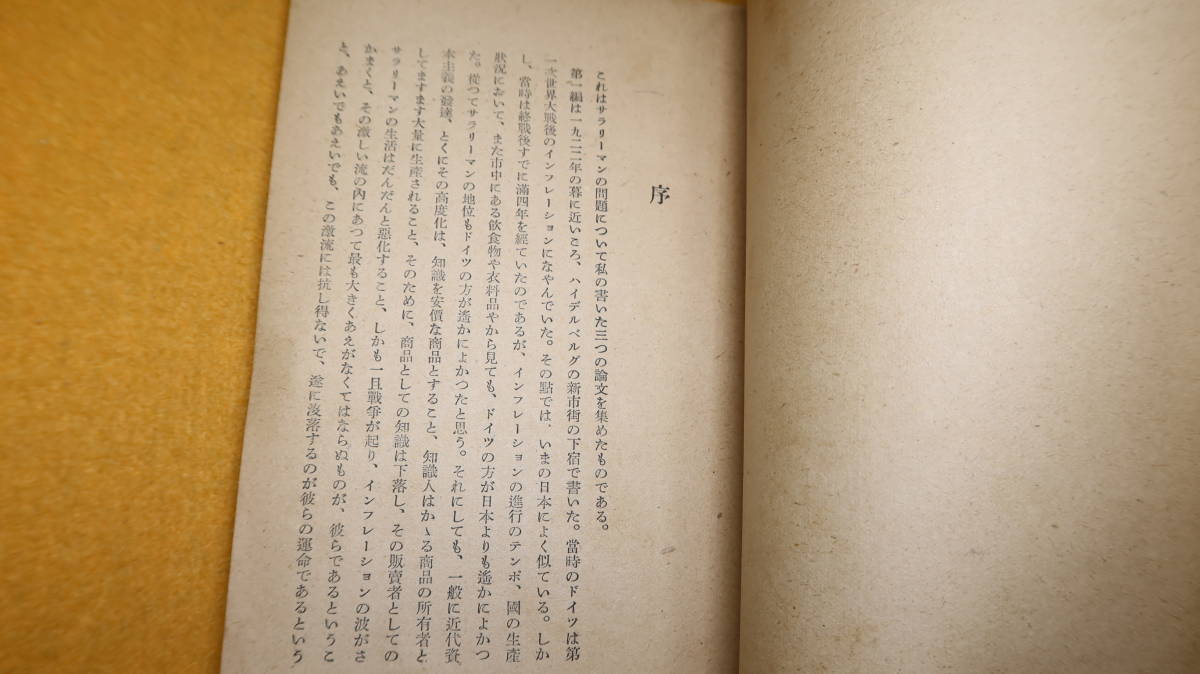 序
これはサラリーマンの問題について私の書いた三つの論文を集めたものである。
第一編は一九二二年の暮に近いころ、ハイデルベルグの新市街の下宿で書いた。當時のドイツは第
一次世界大戰後のインフレーションになやんでいた。その點では、いまの日本によく似ている。しか
し、當時は終戰後すでに滿四年を經ていたのであるが、インフレーションの進行のテンポ、國の生產
狀況において、また市中にある飮食物や衣料品やから見ても、ドイツの方が日本よりも遙かによかつ
た。從つてサラリーマンの地位もドイツの方が遙かによかつたと思う。それにしても、一般に近代資
本主義の發達、とくにその高度化は、知識を安價な商品とすること、知識人はかゝる商品の所有者と
してますます大量に生產されること、そのために、商品としての知識は下落し、その販賣者としての
サラリーマンの生活はだんだんと惡化すること、しかも一旦戰爭が起り、インフレーションの波がさ
かまくと、その激しい流の內にあつて最も大きくあえがなくてはならぬものが、彼らであるというこ
と、あえいでもあえいでも、この激流には抗し得ないで、遂に沒落するのが彼らの運命であるという